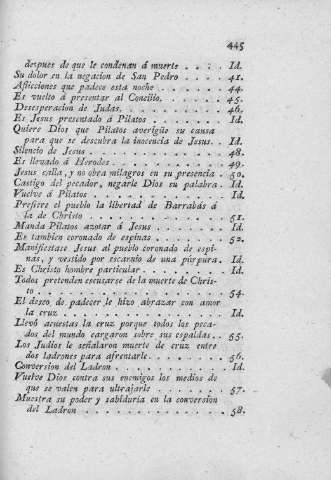 445
despues de que le condenan á muerte . . . . Id.
Su dolor en la negacion de San Pedro . . . . 41.
Aflicciones que padece esta noche . . . . . . 44.
Es vuelto á presentar al Concilio. . . . . . . 45.
Desesperacion de Judas. . . . . . . . . . . . 46.
Es Jesus presentado á Pilatos . . . . . . . . Id.
Quiere Dios que Pilatos averigüe su causa
para que se descubra la inocencia de Jesus. . Id.
Silencio de Jesus . . . . . . . . . . . . . . 48.
Es llevado á Herodes. . . . . . . . . . . . . 49.
Jesus calla, y no obra milagros en su presencia . 50.
Castigo del pecador, negarle Dios su palabra. Id.
Vuelve á Pilatos . . . . . . . . . . . . . . Id.
Prefiere el pueblo la libertad de Barrabás á
la de Christo . . . . . . . . . . . . . . . 51.
Manda Pilatos azotar á Jesus . . . . . . . . Id.
Es tambien coronado de espinas . . . . . . . 52.
Manifiestase Jesus al pueblo coronado de espi-
nas, y vestido por escarnio de una púrpura. Id.
Es Christo hombre particular . . . . . . . . Id.
Todos pretenden escusarse de la muerte de Chris-
to . . . . . . . . . . . . . . . . . . . . . 54.
El deseo de padecer le hizo abrazar con amor
la cruz . . . . . . . . . . . . . . . . . . Id.
Llevó acuestas la cruz porque todos los peca-
dos del mundo cargaron sobre sus espaldas. . 55.
Los Judios le señalaron muerte de cruz entre
dos ladrones para afrentarle. . . . . . . . . 56.
Conversion del Ladron . . . . . . . . . . . . Id.
Vuelve Dios contra sus enemigos los medios de
que se valen para ultrajarle . . . . . . . . 57.
Muestra su poder y sabiduria en la conversion
del Ladron . . . . . . . . . . . . . . . . . 58.